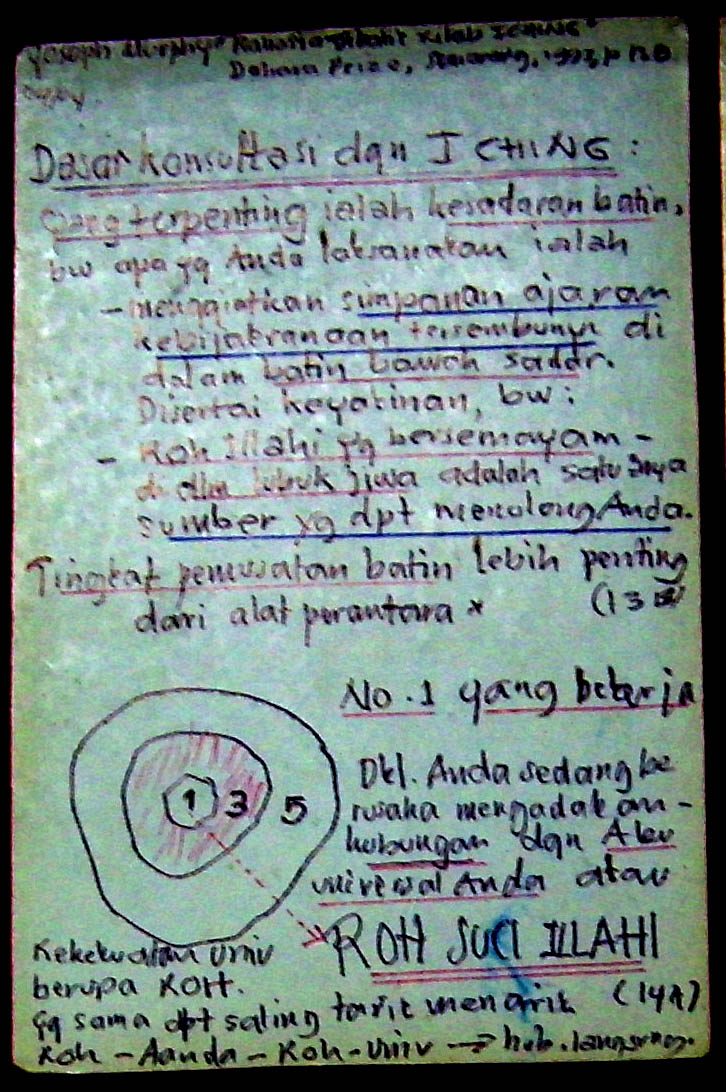 Joseph Murphy "Rahasia dibalik Kitab ICHING"
Dahara Prize, Semarang, 1993, p
Dasar konsultasi dgn I CHING :
Yang terpenting ialah kesadaran batin,
bw apa yg Anda laksanakan ialah
- menggiatkan simpanan ajaran
kebijaksanaan tersembunyi di
dalam batin bawah sadar.
Disertai keyakinan, bw :
- Roh Illahi yg bersemayam -
di dlm lubuk jiwa adalah satu2nya
sumber yg dpt menolong Anda.
Tingkat pemusatan batin lebih penting
dari alat perantara * (13
No. 1 yang bekerja
1 3 5
Dkl. Anda sedang be
rusaha mengadakan -
hubungan dgn Aku
universal Anda atau
ROH SUCI ILLAHI
Kekekuatan Univ
berupa ROH. (14A)
yg sama dpt saling tarik menarik
Roh - Aanda - Roh - Univ → hub. langsung.